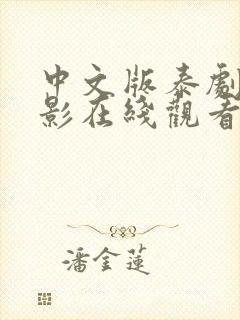 中文版泰劇
影在綫觀看
潘金蓮